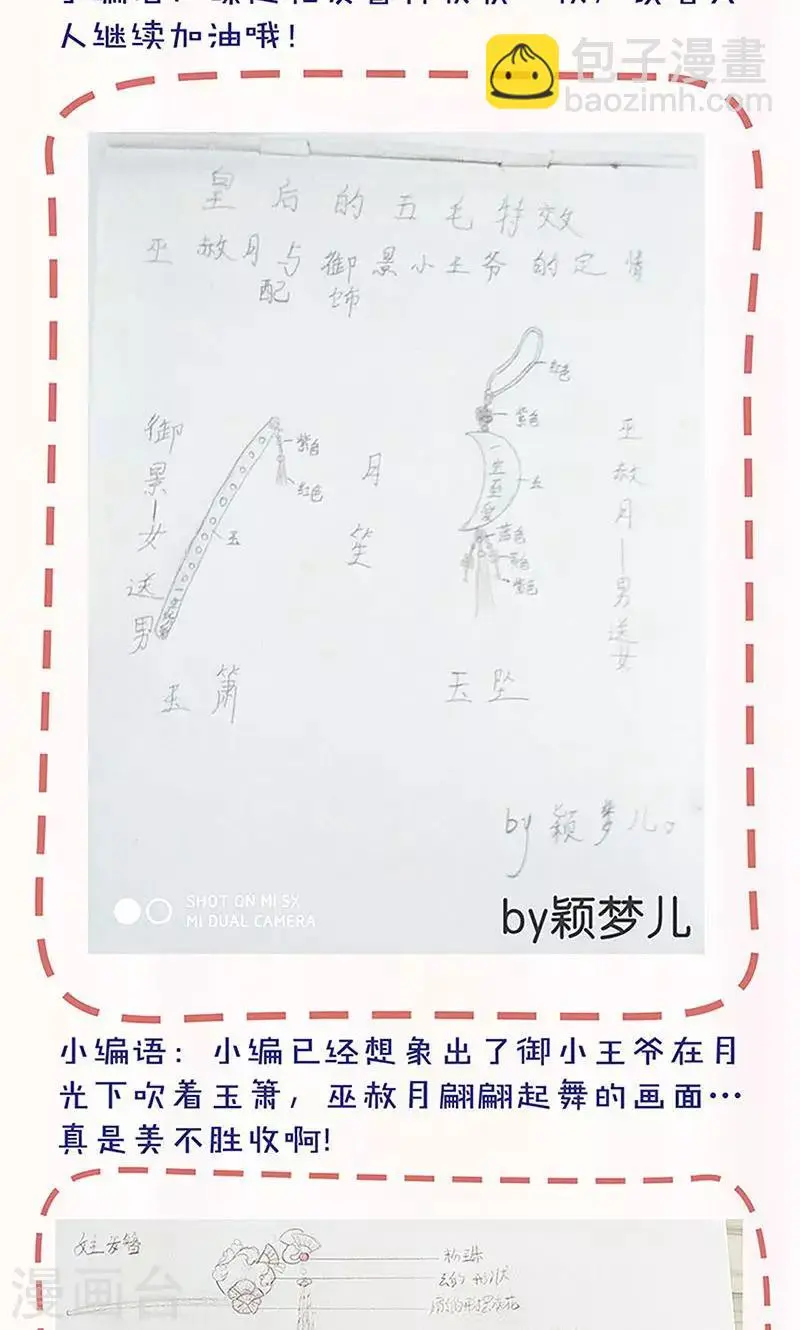 人继续加油哦!
包子漫畫
baozimh.com
皇后的五毛特效
巫赦月与御景小王爷的定情
配饰
红色
紫色
御景—女送男
紫色
红色
玉
月
笙
一生至爱
玉
蓝色
紫色
巫赦月—男送女
玉箫
玉坠
by颖梦儿。
SHOT ON MI 5X
MI DUAL CAMERA
by颖梦儿
小编语：小编已经想象出了御小王爷在月
光下吹着玉箫，巫赦月翩翩起舞的画面…
真是美不胜收啊!
粉珠
漫画台